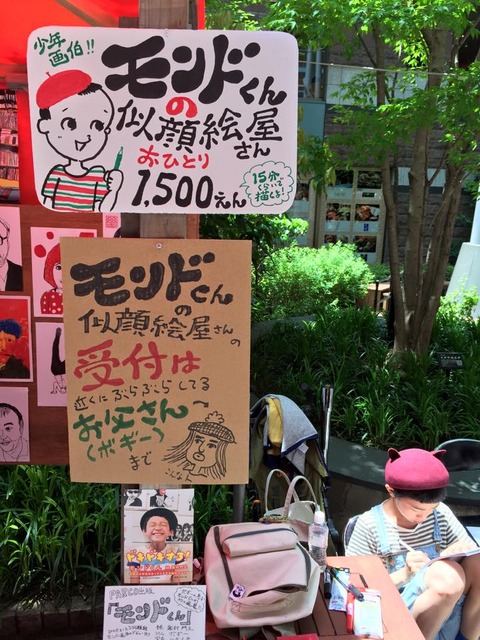 少年
画伯!!
モンドくん
の
似顔絵屋
さん
おひとり
1,500えん
15分
くらいで
描くよ!
モンドくん
の
似顔絵屋さん
の
受付は
近くにぶらぶらしてる
お父さん
(ボギー)
まで
こんな人
ドキドキする!
PARCO出版
『モンドくん』